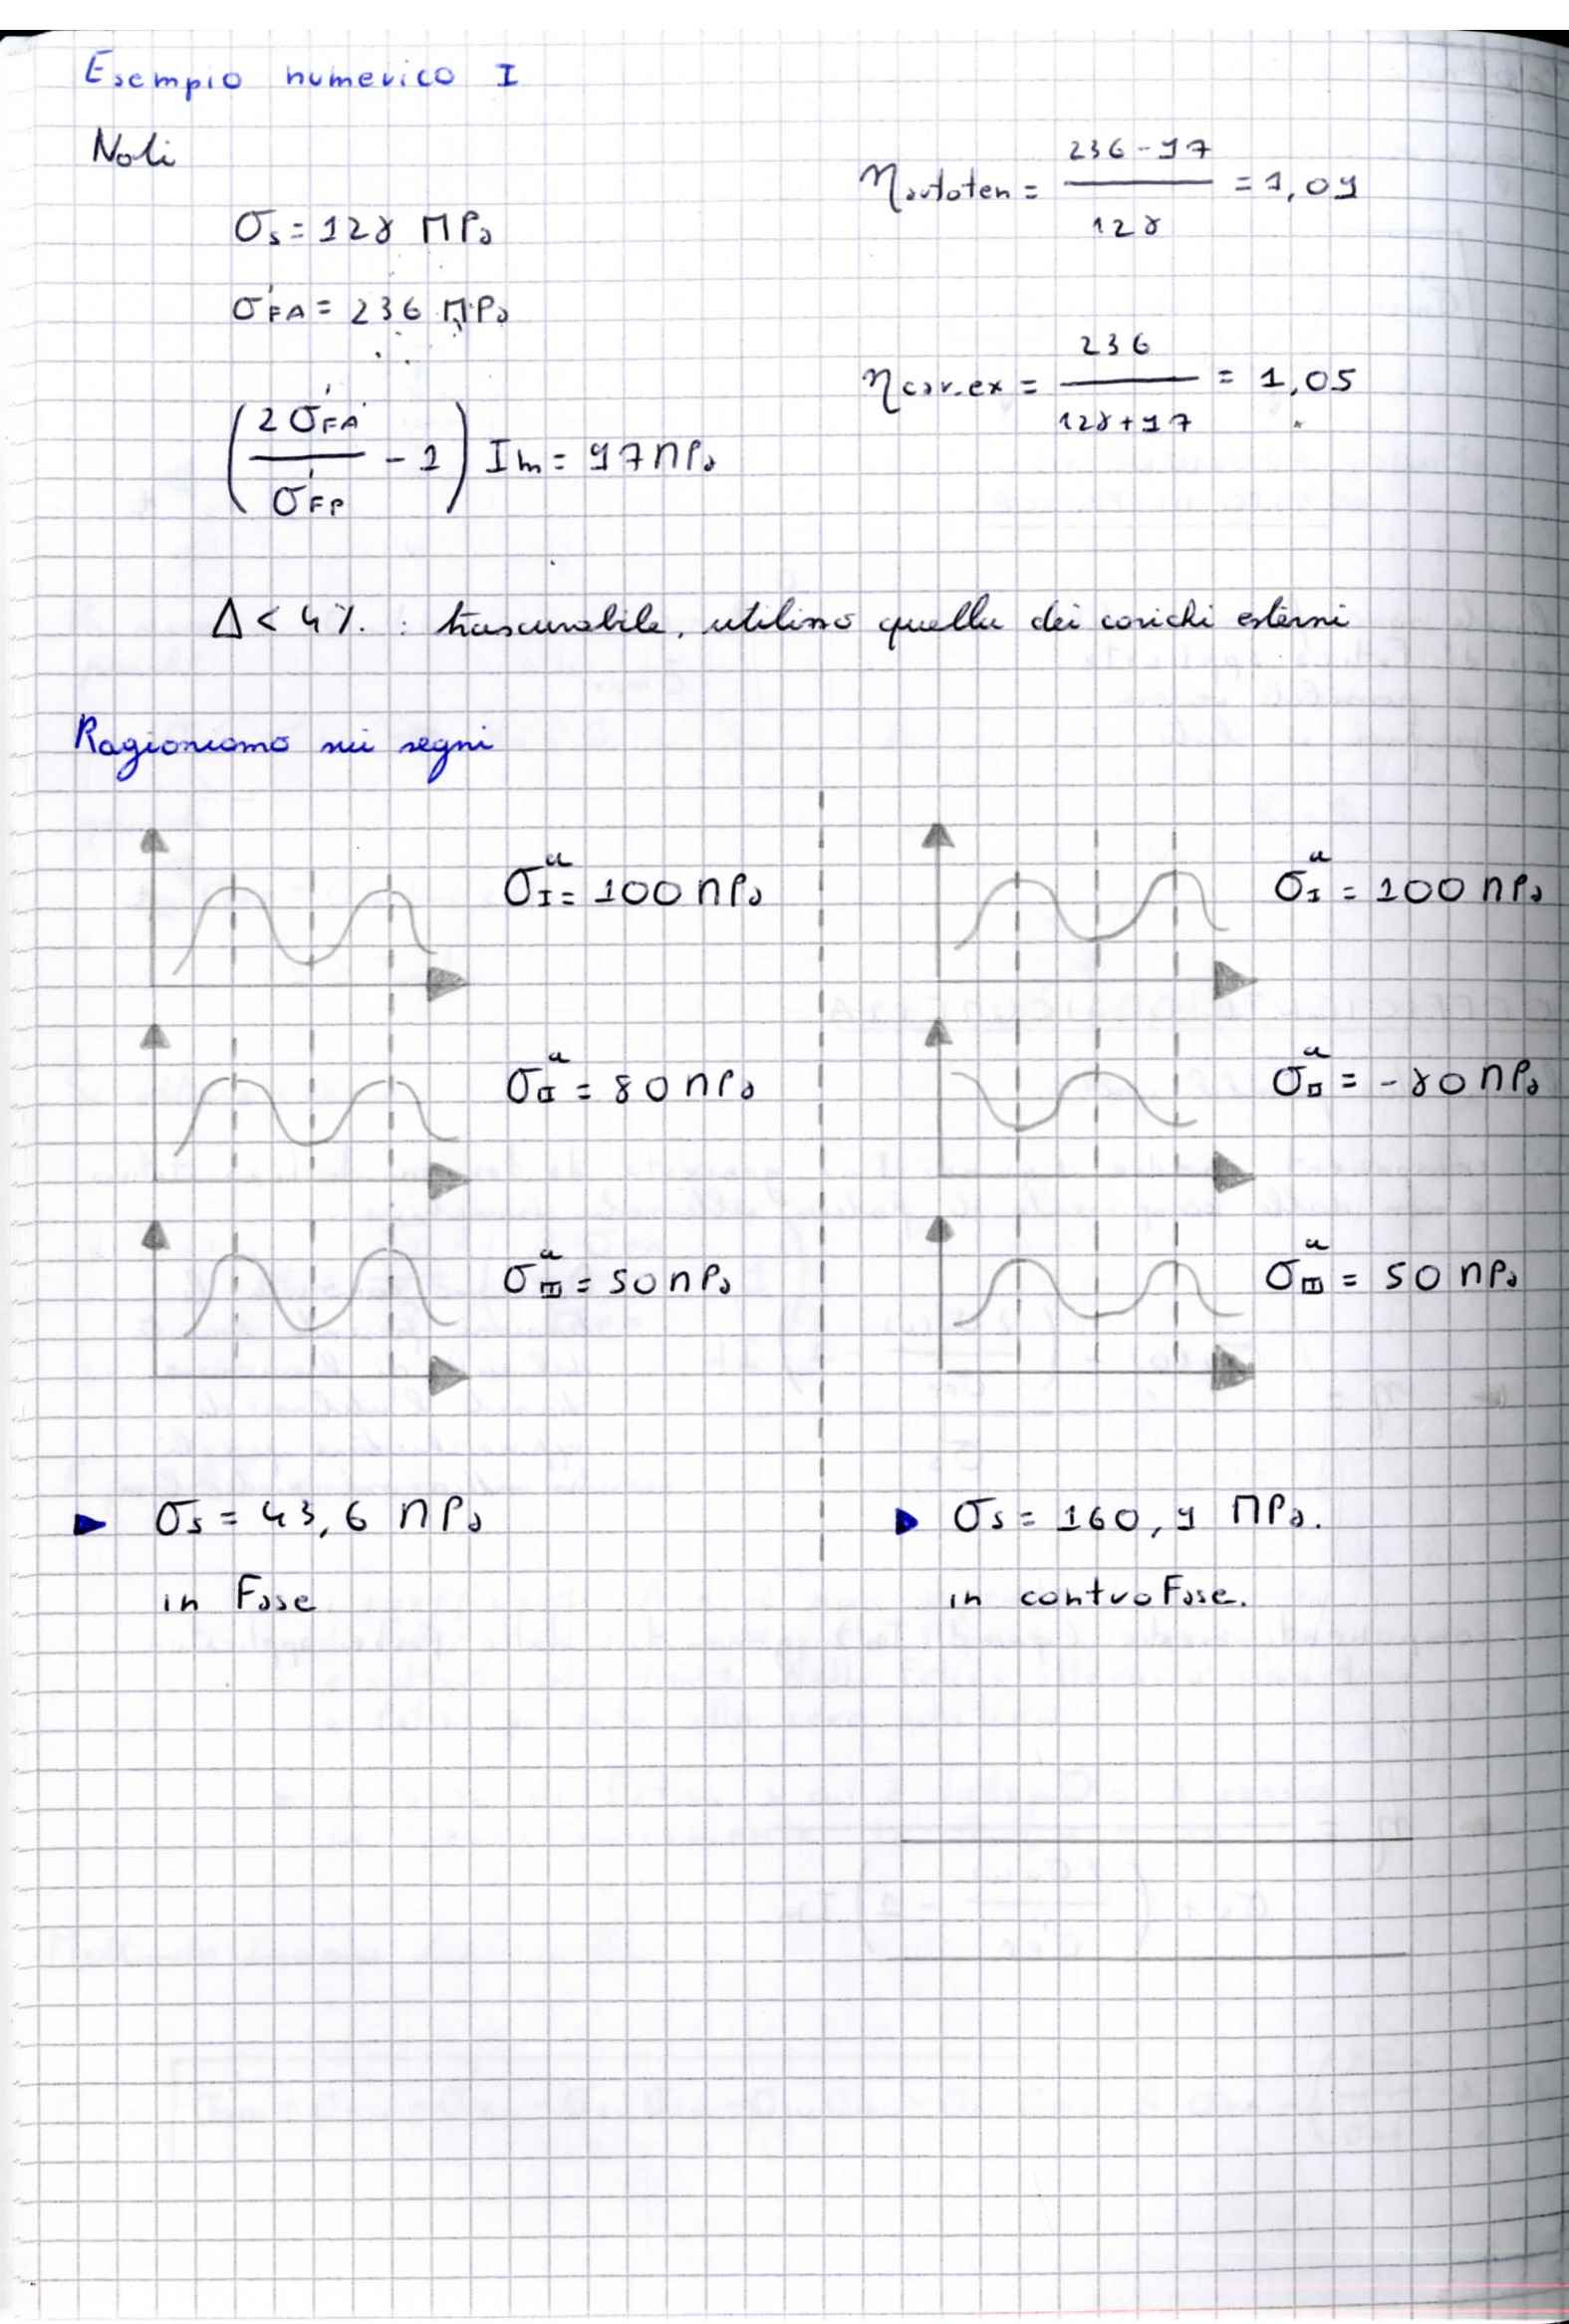 Esempio numerico I
Noti
σs = 128 MPa
σ'FA = 236 MPa
(2σ'FA / σ'FP - 1) Im = 97 MPa
ηautoten = (236 - 97) / 128 = 1,09
ηcar.ex = 236 / (128 + 97) = 1,05
Δ < 4% : trascurabile, utilizzo quella dei carichi esterni
Ragioniamo sui segni
σI^a = 100 MPa
σII^a = 80 MPa
σIII^a = 50 MPa
▶ σs = 43,6 MPa
in Fase
σI^a = 100 MPa
σII^a = -80 MPa
σIII^a = 50 MPa
▶ σs = 160,9 MPa.
in controFase.